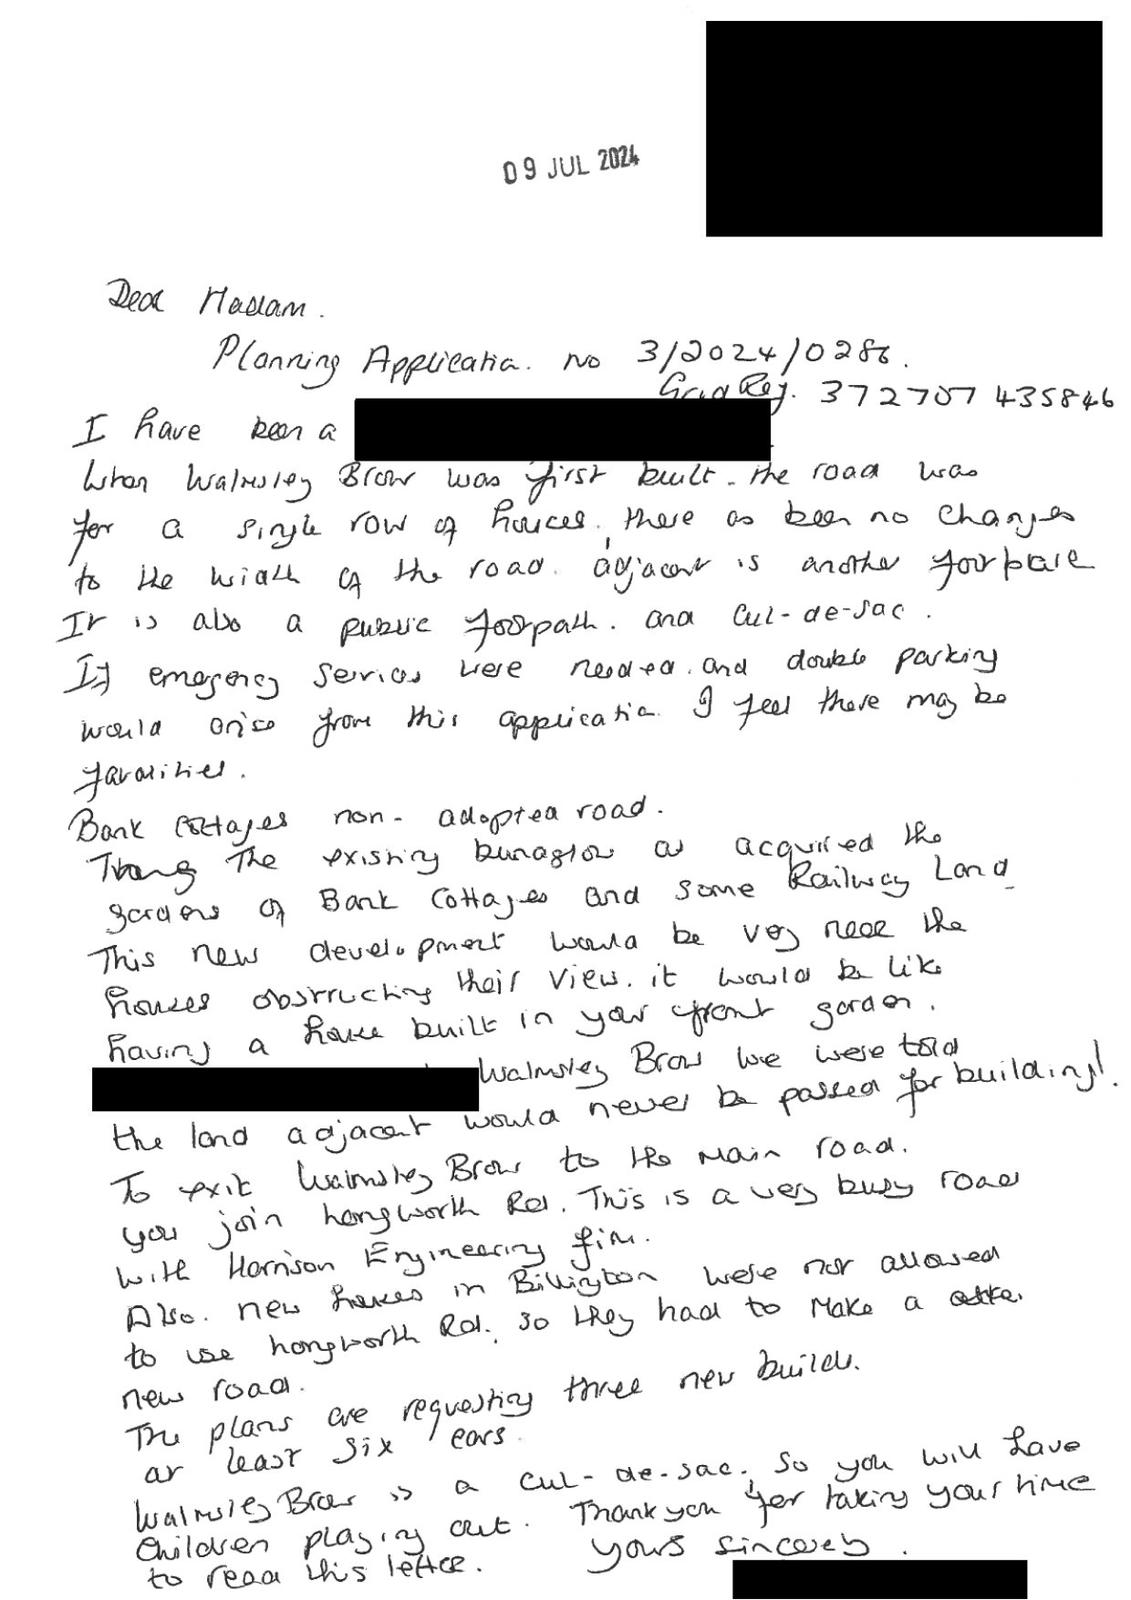 09 JUL 2024
Dear Madam.
Planning Applicatia. no 3/2024/0286.
Grid Ref. 372707 435846
I have been a
When Walmsley Brow was first built. the road was
for a single row of houses, there as been no changes
to the width of the road. adjacent is another footpath
It is also a public footpath. and Cul-de-sac.
If emergency services were needed. and double parking
would arise from this applicatia. I feel there may be
fatalities.
Bank Cottages non-adopted road.
The existing bungalow as acquired the
gardens of Bank Cottages and some Railway Land
This new development would be very near the
houses obstructing their view. it would be like
having a house built in your front garden.
Walmsley Brow we were told
the land adjacent would never be passed for building!
To exit Walmsley Brow to the main road.
you join Longworth Rd. This is a very busy road
with Harrison Engineering firm.
Also. new houses in Billington were not allowed
to use Longworth Rd. so they had to make a
new road.
The plans are requesting three new builds.
at least six cars.
Walmsley Brow is a cul-de-sac. So you will have
Children playing out. Thankyou for taking your time
to read this letter. yours sincerely.